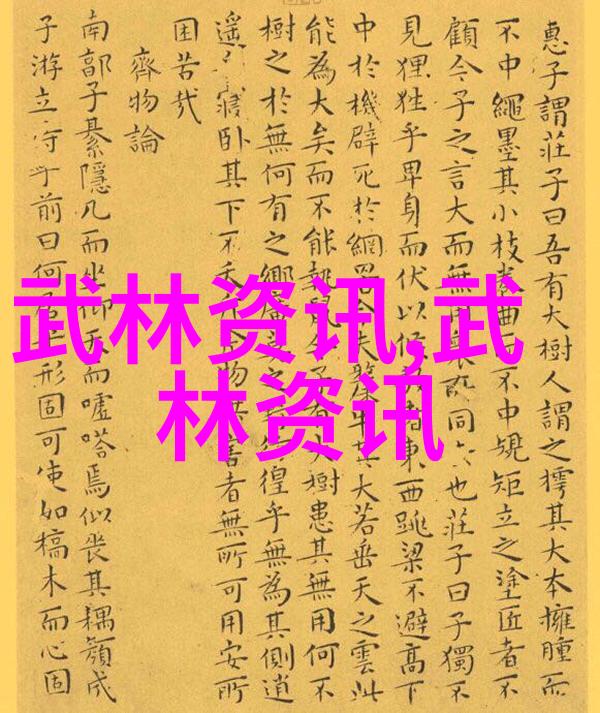 惠子謂莊子曰吾有大樹人謂之樗其大本擁腫而
不中繩墨其小枝卷曲而不中規矩立之塗匠者不
顧今子之言大而無用衆所同也莊子曰子獨不
見狸狌乎卑身而伏以候者東西跳梁不避高下
中於機辟死於網罟今夫斄牛其大若垂天之雲此
能為大矣而不能執鼠今子有大樹患其無用何不
樹之於無何有之鄉廣之彷徨乎無為其側逍
遥寢卧其下不夭物無害者無所可用安所
困苦哉
齊物論
南郭子綦隱几而坐仰天而嘘嗒焉似喪其耦顏成
子游立侍乎前曰何居形固可使如槁木而心固
武林资讯,武
林资讯